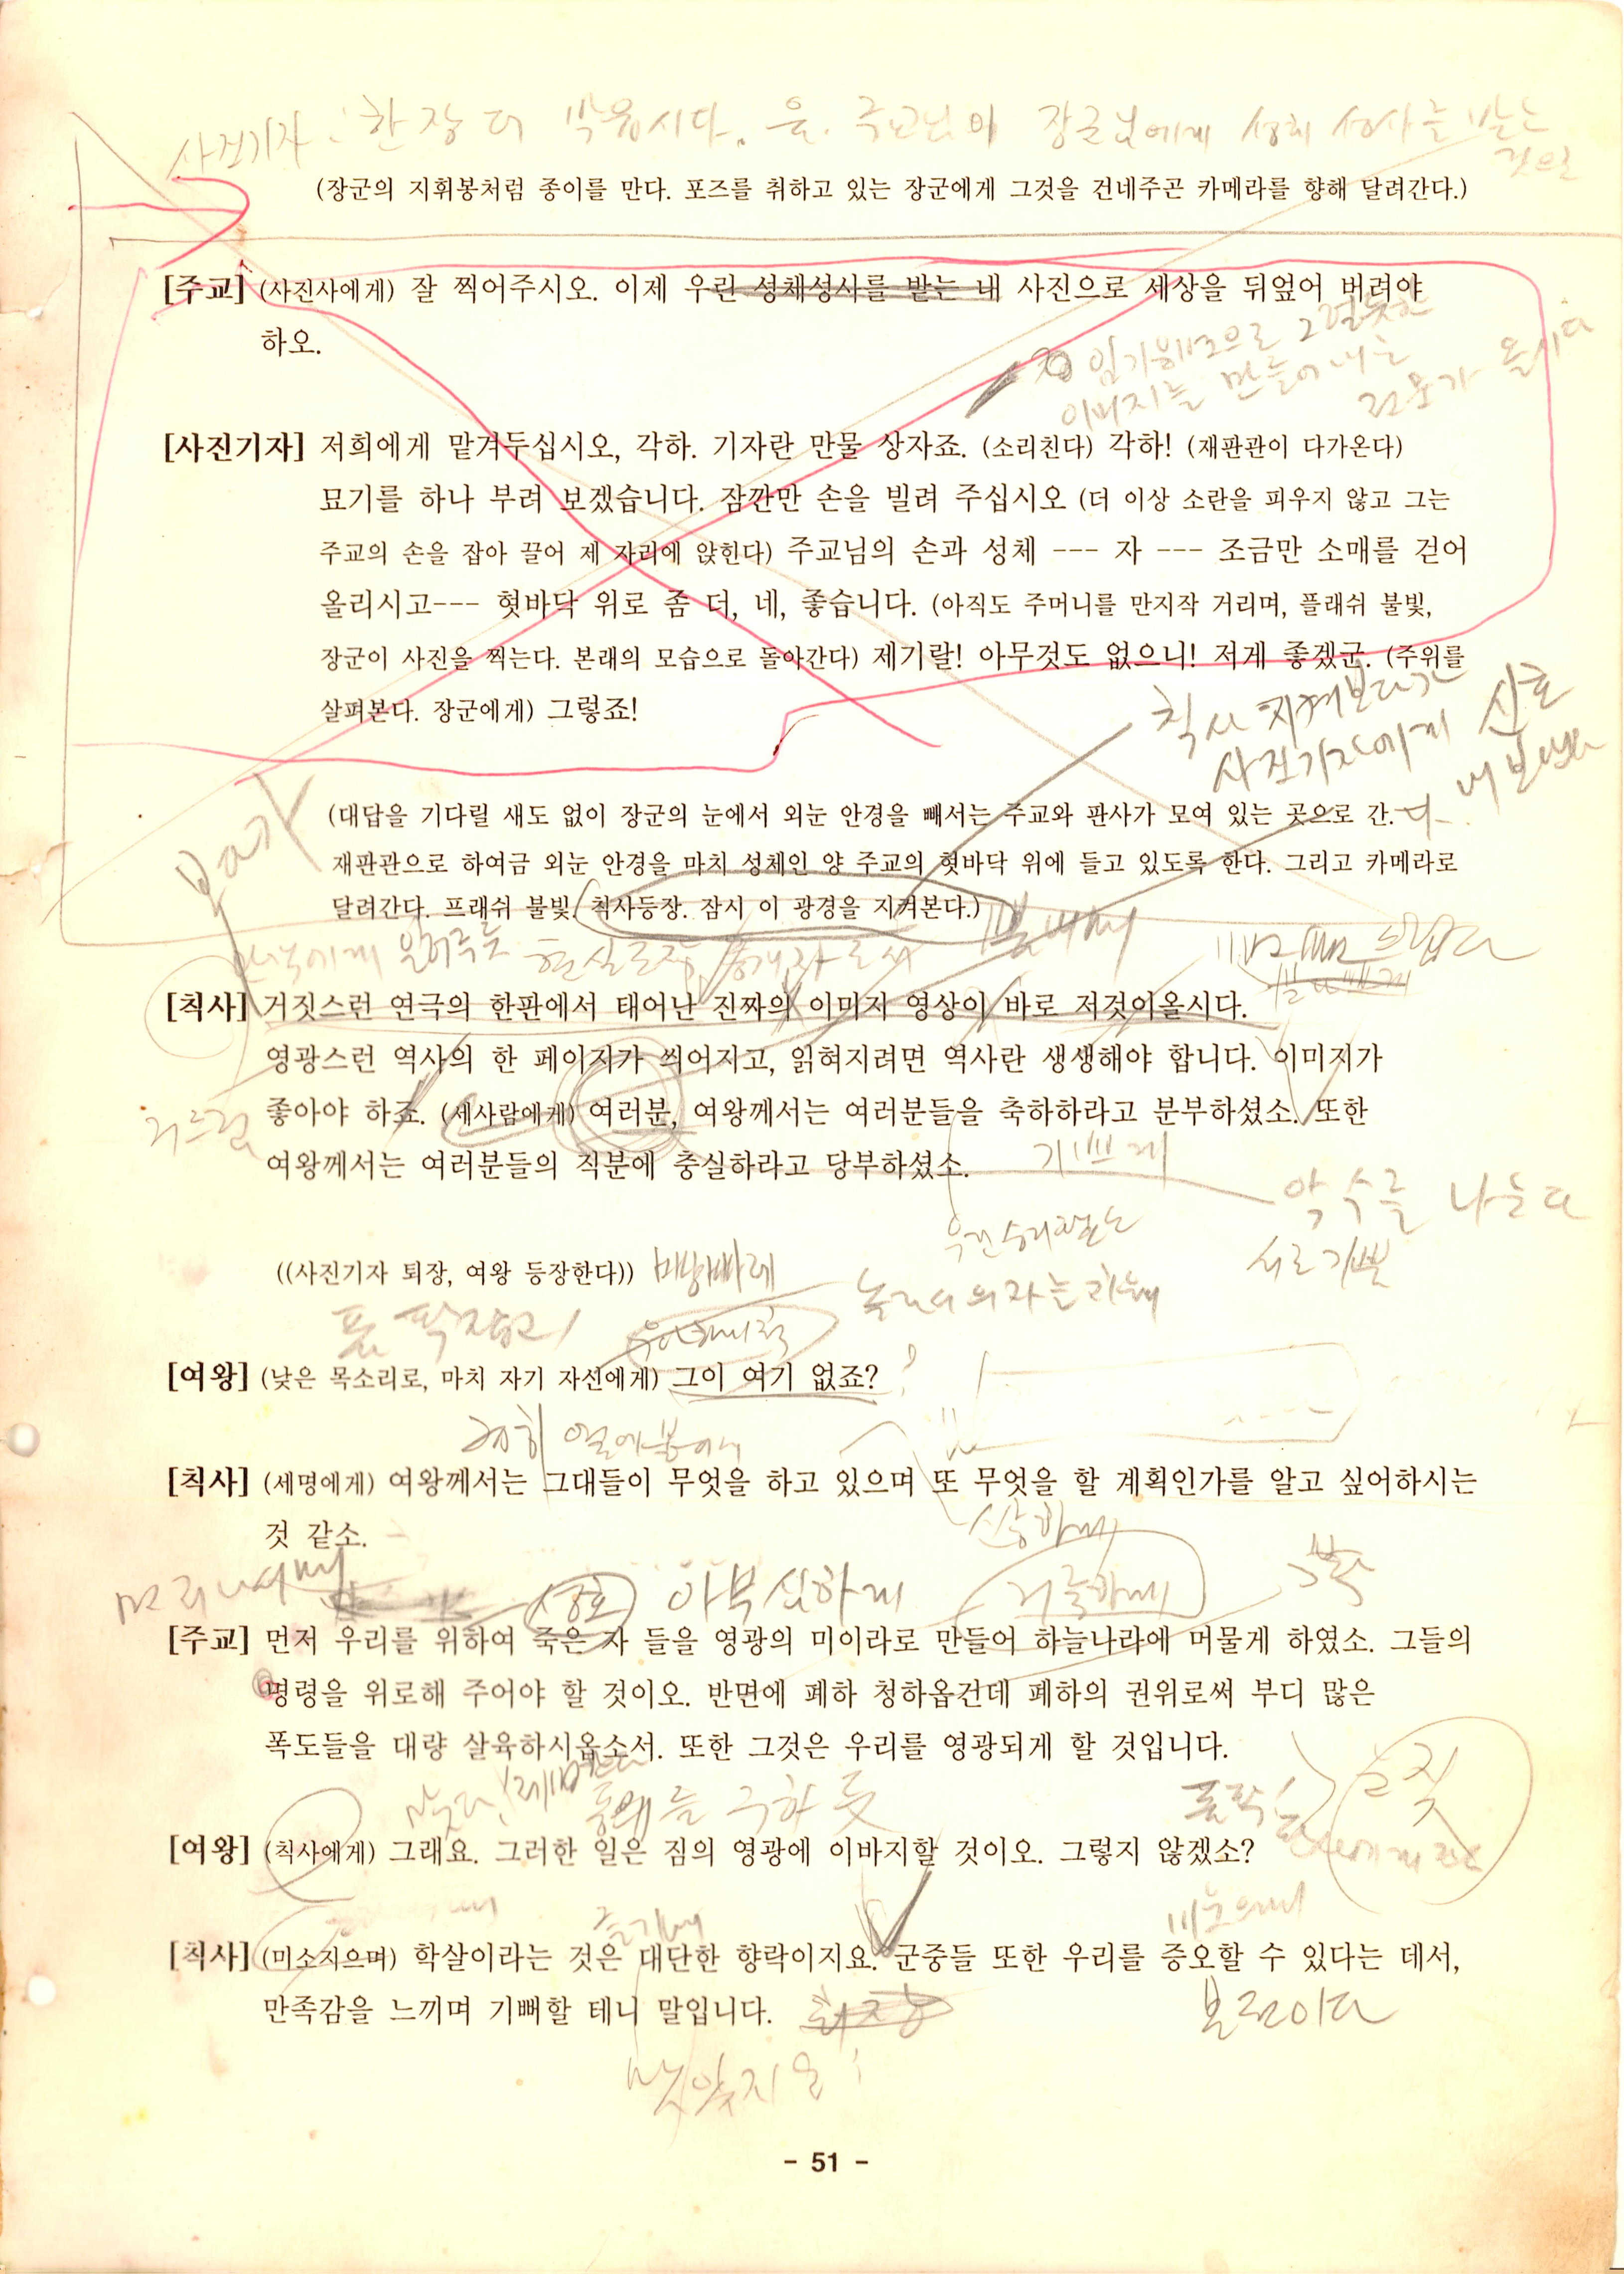 사진기자 : 한 장 더 박읍시다. 음. 주교님이 장군님에게 성체 성사를 받는
것으로
(장군의 지휘봉처럼 종이를 만다. 포즈를 취하고 있는 장군에게 그것을 건네주곤 카메라를 향해 달려간다.)
[주교] (사진사에게) 잘 찍어주시오. 이제 우린 성채성사를 받는 내 사진으로 세상을 뒤엎어 버려야
하오.
임기웅변으로 그럴듯한
이미지를 만들어내는
전문가 올시다
[사진기자] 저희에게 맡겨두십시오, 각하. 기자란 만물 상자죠. (소리친다) 각하! (재판관이 다가온다)
묘기를 하나 부려 보겠습니다. 잠깐만 손을 빌려 주십시오 (더 이상 소란을 피우지 않고 그는
주교의 손을 잡아 끌어 제 자리에 앉힌다) 주교님의 손과 성체 --- 자 --- 조금만 소매를 걷어
올리시고--- 혓바닥 위로 좀 더, 네, 좋습니다. (아직도 주머니를 만지작 거리며, 플래쉬 불빛,
장군이 사진을 찍는다. 본래의 모습으로 돌아간다) 제기랄! 아무것도 없으니! 저게 좋겠군. (주위를
살펴본다. 장군에게) 그렇죠!
칙사 지켜보다가
사진기자에게 신호
내 보낸다
(대답을 기다릴 새도 없이 장군의 눈에서 외눈 안경을 빼서는 주교와 판사가 모여 있는 곳으로 간.
재판관으로 하여금 외눈 안경을 마치 성체인 양 주교의 혓바닥 위에 들고 있도록 한다. 그리고 카메라로
달려간다. 프래쉬 불빛. 칙사등장. 잠시 이 광경을 지켜본다.)
[칙사] 거짓스런 연극의 한판에서 태어난 진짜의 이미지 영상이 바로 저것이올시다.
영광스런 역사의 한 페이지가 씌어지고, 읽혀지려면 역사란 생생해야 합니다. 이미지가
좋아야 하죠. (세사람에게) 여러분, 여왕께서는 여러분들을 축하하라고 분부하셨소. 또한
여왕께서는 여러분들의 직분에 충실하라고 당부하셨소.
기쁘게
악수를 나눈다
서로 기쁨
((사진기자 퇴장, 여왕 등장한다)) 빵빠레
폼 딱잡고
[여왕] (낮은 목소리로, 마치 자기 자선에게) 그이 여기 없죠?
[칙사] (세명에게) 여왕께서는 그대들이 무엇을 하고 있으며 또 무엇을 할 계획인가를 알고 싶어하시는
것 같소.
아부 심하게
[주교] 먼저 우리를 위하여 죽은 자 들을 영광의 미이라로 만들어 하늘나라에 머물게 하였소. 그들의
명령을 위로해 주어야 할 것이오. 반면에 폐하 청하옵건데 폐하의 권위로써 부디 많은
폭도들을 대량 살육하시옵소서. 또한 그것은 우리를 영광되게 할 것입니다.
동의를 구하듯
[여왕] (칙사에게) 그래요. 그러한 일은 짐의 영광에 이바지할 것이오. 그렇지 않겠소?
즐기며
[칙사] (미소지으며) 학살이라는 것은 대단한 향락이지요. 군중들 또한 우리를 증오할 수 있다는 데서,
만족감을 느끼며 기뻐할 테니 말입니다. 퇴장
본전이다
- 51 -